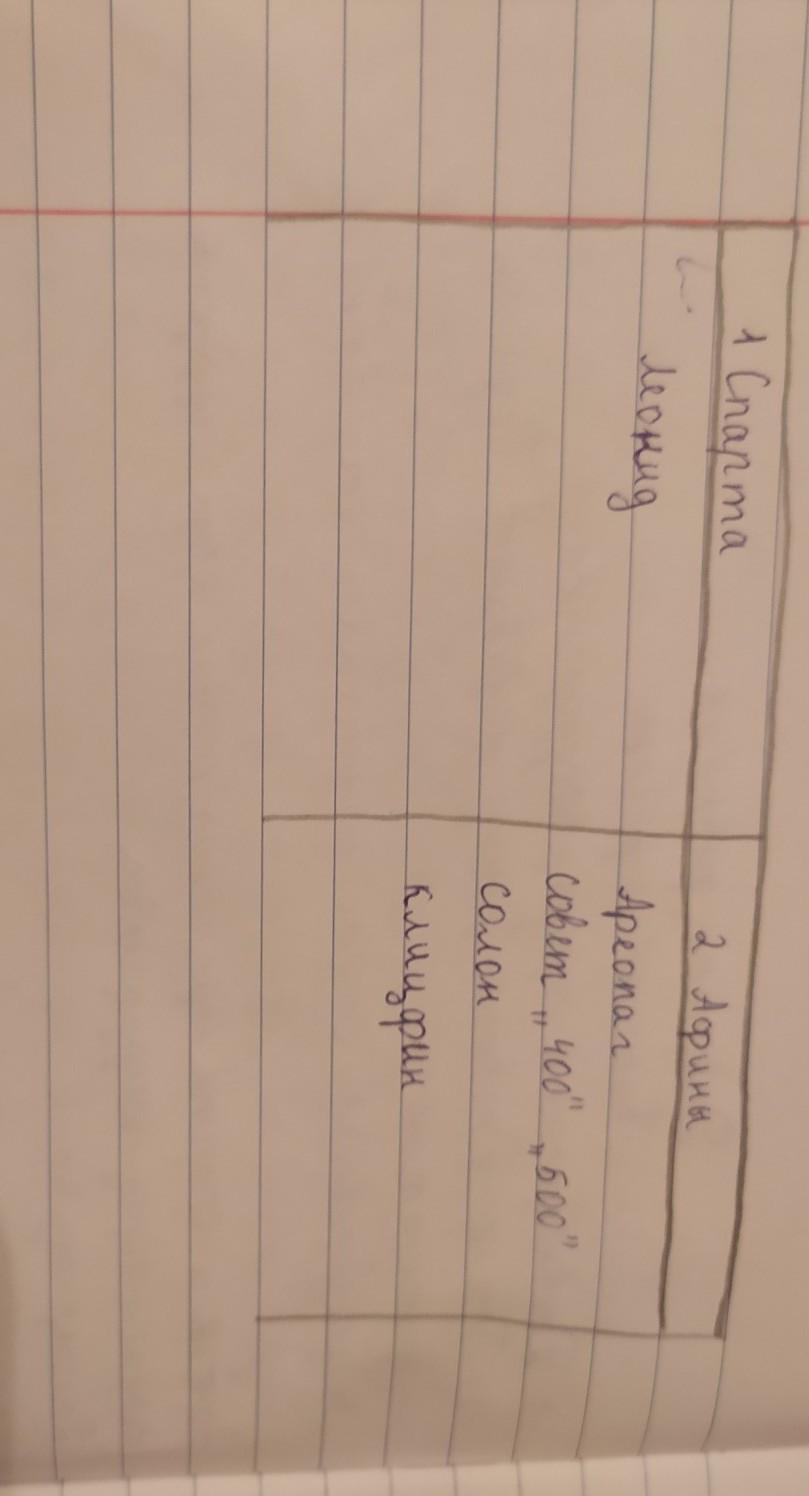 1 Спарта
2 Афины
Леонид
Ареопаг
Совет „400" „500"
Солон
Клицфин